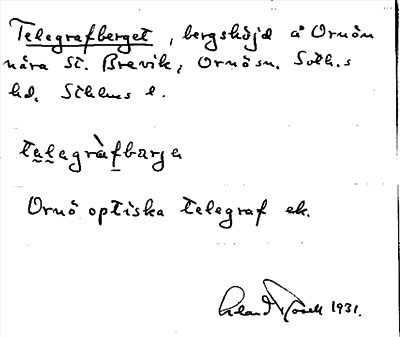 Telegrafberget, bergshöjd å Ornön
nära St. Brevik, Ornö sn. Soth.s
hd. Sthlms l.
telegràfbärjə
Ornö optiska telegraf ek.
1931.